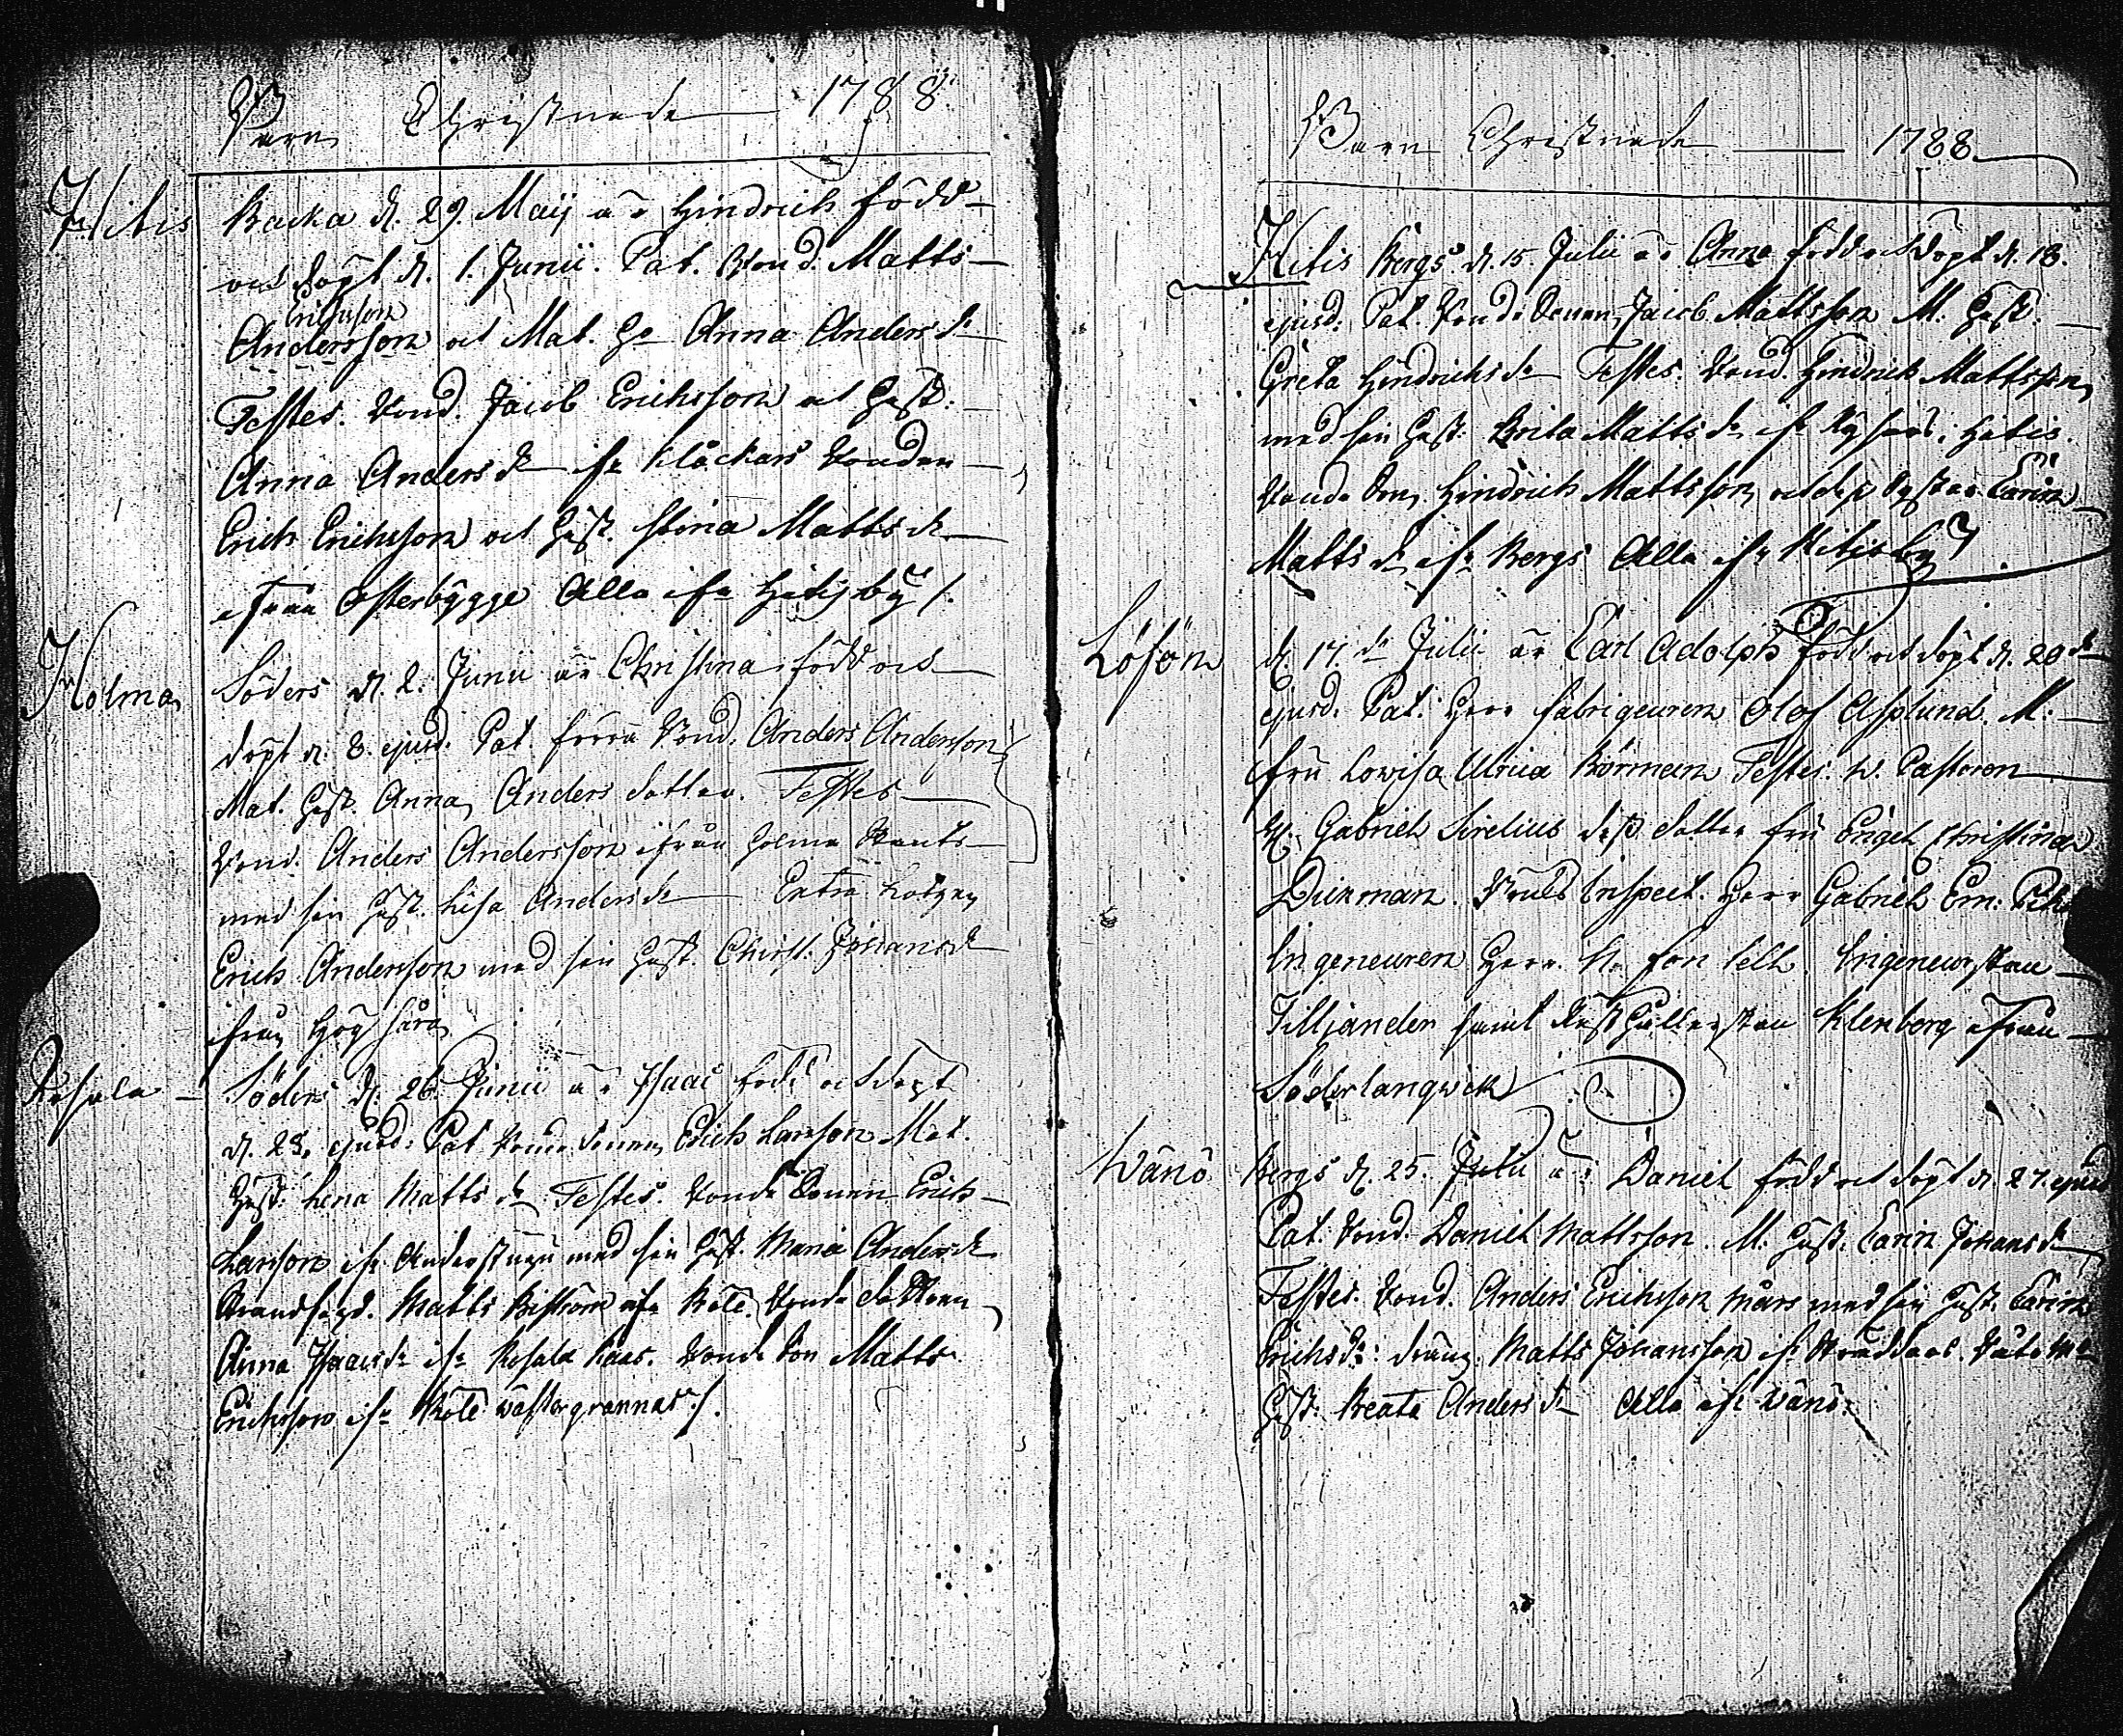 Barn Christnade 1788
Hitis Backa d. 29. Maij är Hindrich född
och döpt d. 1. Junii. Pat. Bond. Matts
Erichsson
Andersson och Mat. H: Anna Anders dr
Testes. Bond. Jacob Erichsson och Hust:
Anna Anders dr ifr Klåckars Bonden
Erich Erichsson och Hust. Stina Matts dr
ifrån Österbygge Alla ifr Hitis by /.
Holma Söders d. 2. Junii är Christina född och
döpt d. 8. ejusd. Pat. förra Bond. Anders Andersson
Mat. Hust. Anna Anders dotter. Testes
Bond. Anders Andersson ifrån Holma
med sin Hust. Lisa Anders dr
Erich Andersson med sin Hust. Christ. Johans dr
ifrån Högsåra
Rosala Söders d. 26. Junii är Isaac född och döpt
d. 28. ejusd. Pat. Bonde Sonen Erich Larsson Mat.
Hust: Lena Matts dr Testes. Bonde Sonen Erich
Larsson ifr med sin Hust. Maria Anders dr
Matts ifr Böle. Bonde dottren
Anna Isaacs dr ifr Rosala Bonde Son Matts
Erichsson ifr Böle wästergrannas /.
Barn Christnade 1788
Hitis Bergs d. 15 Julii är Anna född och döpt d. 18.
ejusd: Pat. Bonde Sonen Jacob Mattsson M. Hust:
Greta Hindrichs dr Testes. Bond. Hindrich Mattsson
med sin Hust: Brita Matts dr ifr Hitis.
Bonde Son, Hindrich Mattsson och dess Syster Carin
Matts dr ifr Bergs Alla ifr Hitis by
Löfön d. 17. de Julii är Carl Adolph född och döpt d. 20 de
ejusd. Pat. Herr Fabriqeuren Olof Asplund. M:
Fru Lowisa Ulrica Börman Testes: W. Pastoren
H. Gabriel Sirelius dess dotter Fru Engel Christina
Dickman. Bruks Inspect. Herr Gabriel Em.
Ingeneuren Herr Ingeneurskan
Tilljander samt Klenberg ifrån
Söderlangwik
Wänö Bergs d. 25. Julii är Daniel född och döpt d. 27. ejusd
Pat. Bond. Daniel Mattsson. M: Hust: Carin Johans dr
Testes. Bond. Anders Erichsson Mårs med sin Hust: Carin
Erichs dr: dräng Matts Johansson ifr
Hust: Beata Anders dr Alla ifr Wänö.